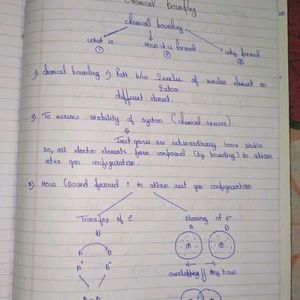 Chemical bounding
chemical bounding
what is
How it is formed
why formed
① ② ③
1) chemical bounding → b/w 2 of similar element or
2 atom
different element.
2) To stability of system (chemical species)
Inert gases are extraordinary more stable
so, all element form compound (by bounding) to attain
inert gas configuration.
3) How (Bound formed) to attain inert gas configuration
Transfer of e⁻
sharing of e⁻
A B
A B
A⁺ B⁻
overlapping // Any how
A – B